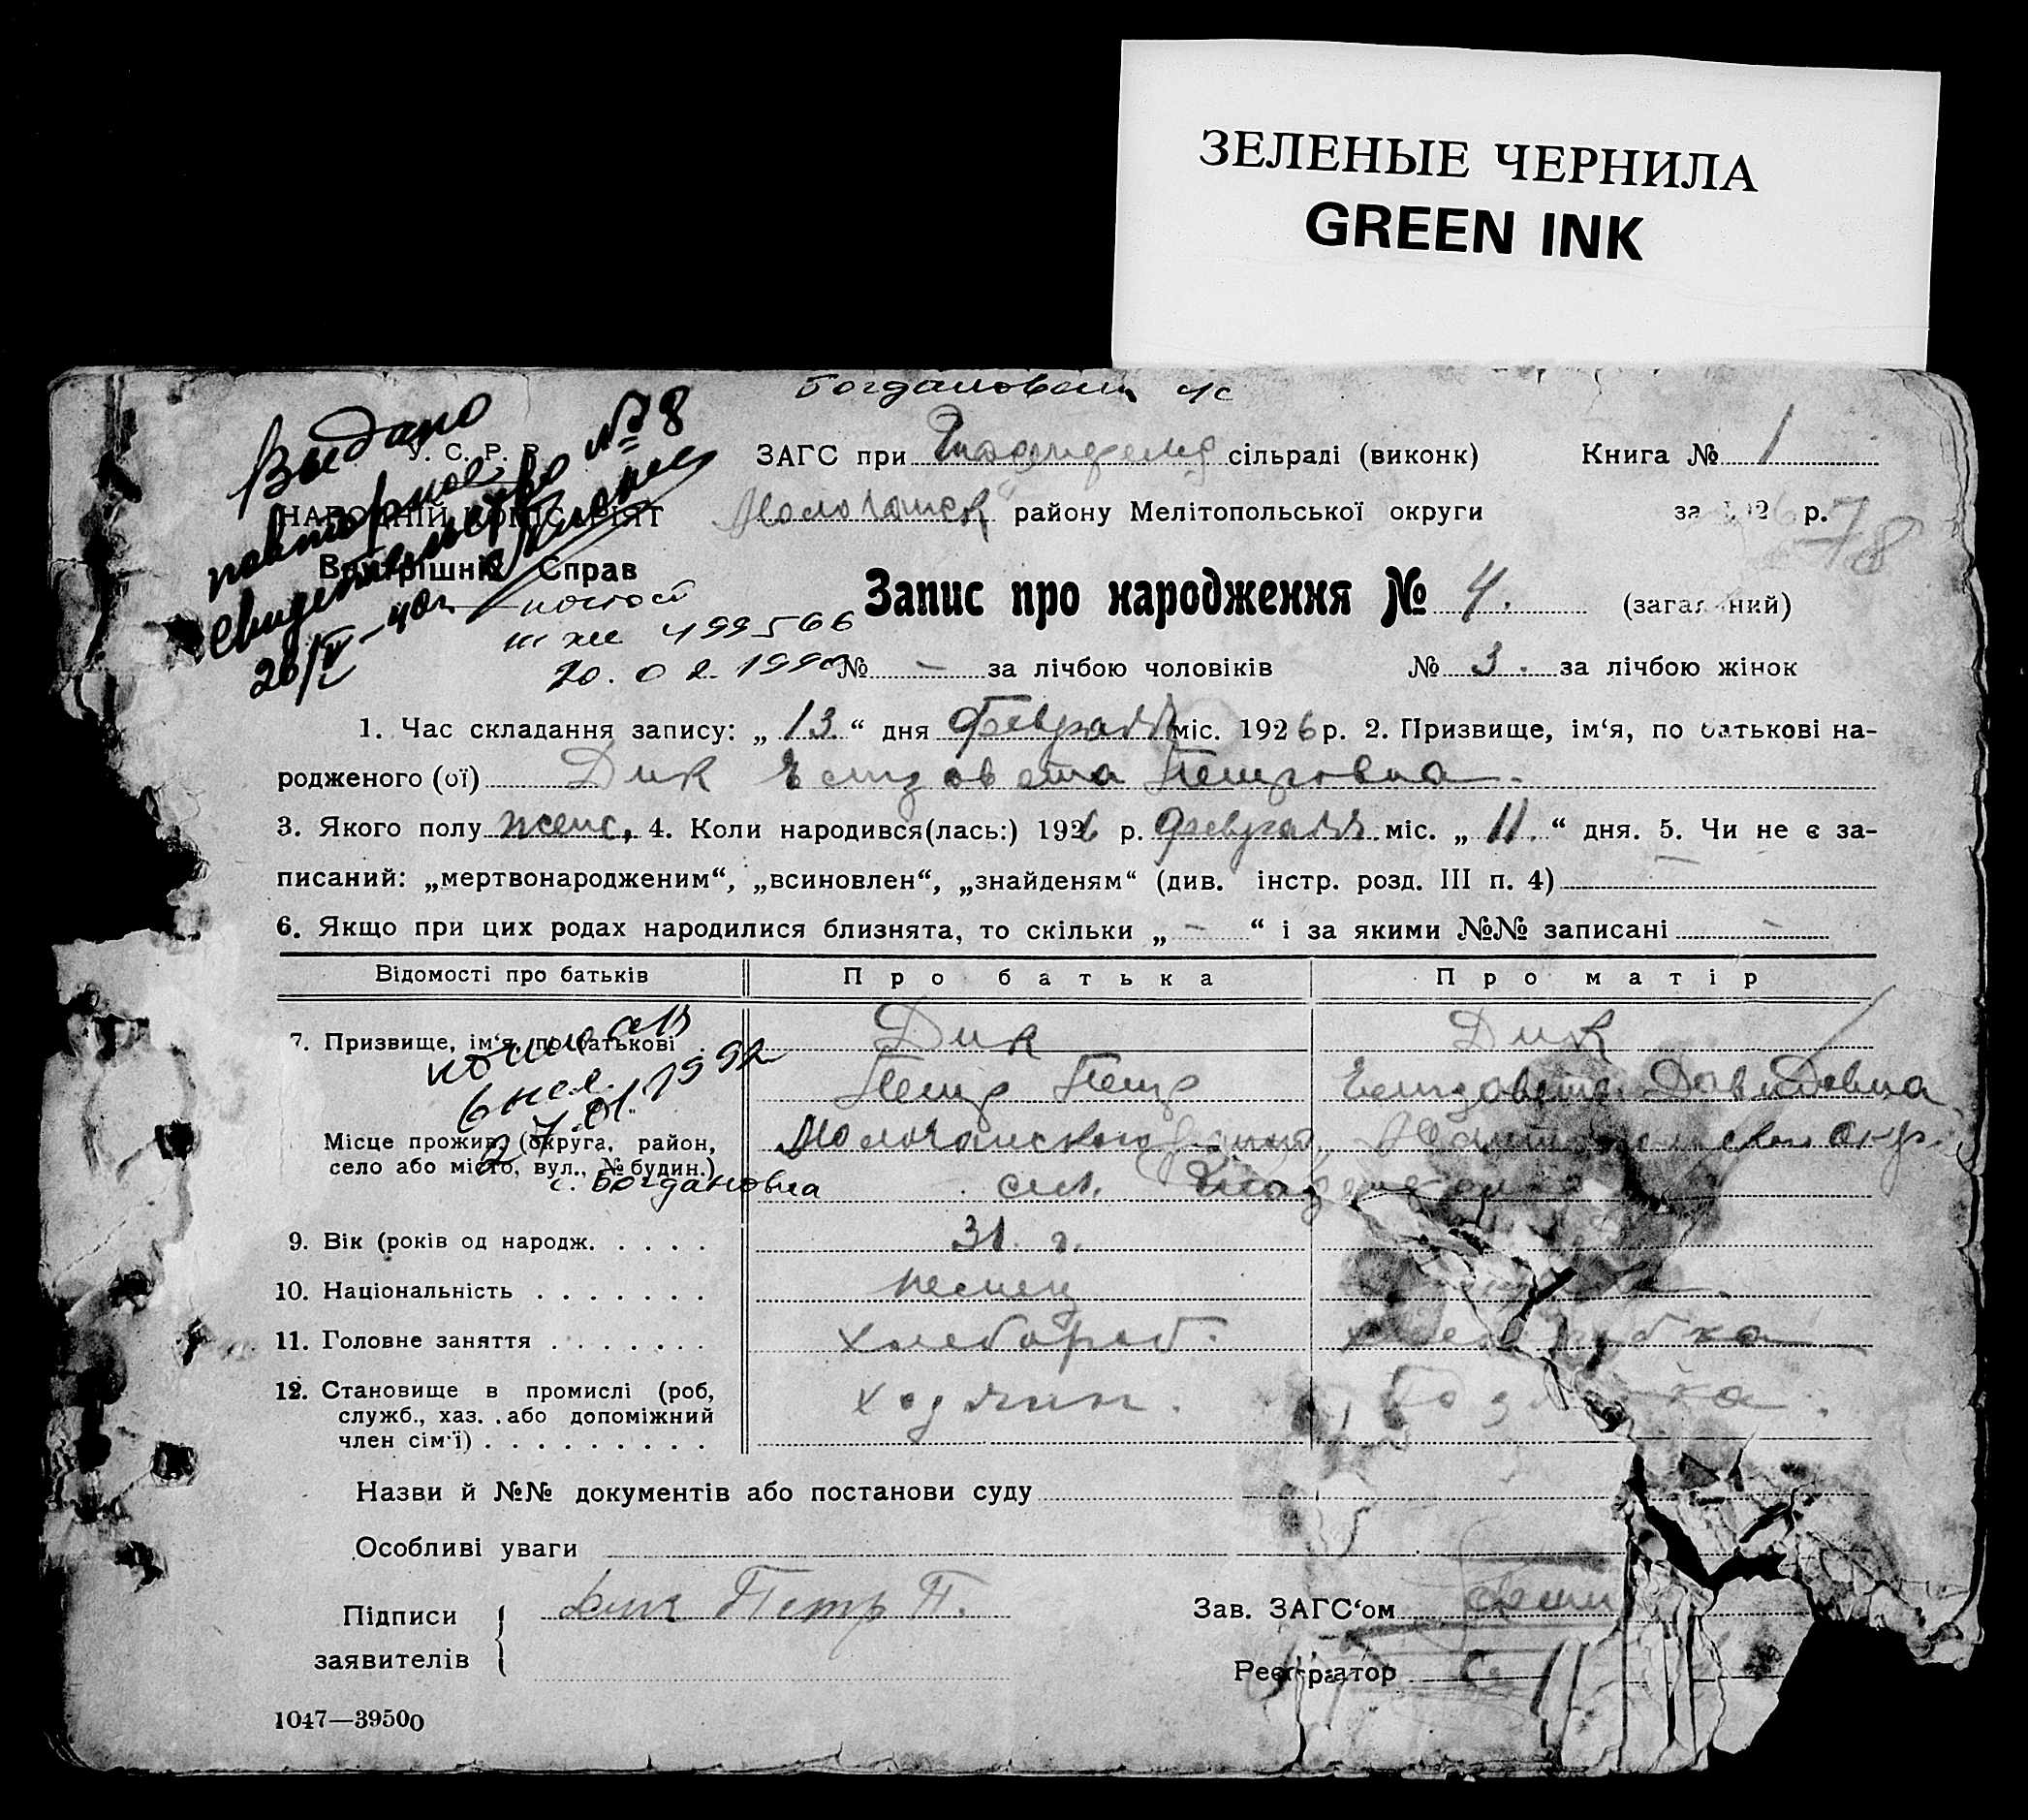 ЗЕЛЕНЫЕ ЧЕРНИЛА
GREEN INK
Выдано
повторное
свидетельство №8
26/V–40г.
ІІІ жс 499566
20.02.1990
У. С. Р. Р.
НАРОДНІЙ КОМІСАРІЯТ
Внутрішніх Справ
ЗАГС при сільраді (виконк) Книга № 1
району Мелітопольської округи за 1926 р.
78
Запис про народження № 4. (загальний)
№ – за лічбою чоловіків № 3. за лічбою жінок
1. Час складання запису: „13“ дня февраля міс. 1926 р. 2. Призвище, ім‘я, по батькові на-
родженого (ої) Дик Елизавета Петровна.
3. Якого полу женс, 4. Коли народився(лась:) 1926 р. февраля міс. „11.“ дня. 5. Чи не є за-
писаний: „мертвонародженим“, „всиновлен“, „знайденям“ (див. інстр. розд. III п. 4) –
6. Якщо при цих родах народилися близнята, то скільки „–“ і за якими №№ записані –
Відомості про батьків Про батька Про матір
7. Призвище, ім‘я, по батькові Дик Дик
Петр Петр Елизавета Давидовна
27.01.1992
Місце прожив. (округа, район, Молочанского окр.
село або місто, вул., № будин.) сел.
с. Богдановка
9. Вік (років од народж. . . . . 31 г.
10. Національність . . . . . . . немец
11. Головне заняття . . . . . . . хлебороб. хлеборобка
12. Становище в промислі (роб, хозяин. хозяйка.
служб., хаз. . або допоміжний
член сім‘ї) . . . . . . . . .
Назви й №№ документів або постанови суду
Особливі уваги
Підписи Дик Петр П. Зав. ЗАГС‘ом
заявителів Реєстратор
1047—39500